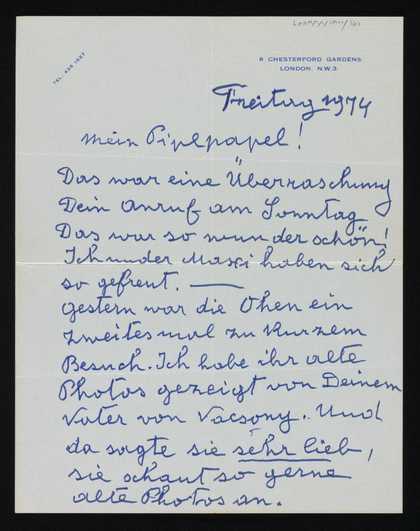 TEL. 435 1687
8 CHESTERFORD GARDENS
LONDON. N.W.3.
Freitag 1974
mein Piplpapel!
Das war eine Überraschung
Dein Anruf am Sonntag
Das war so wunderschön!
Ich under Maxi haben sich
so gefreut. —
Gestern war die Ohen ein
zweites mal zu kurzem
Besuch. Ich habe ihr alte
Photos gezeigt von Deinem
Vater von Vacsony. Und
da sagte sie sehr lieb,
sie schaut so gerne
alte Photos an.